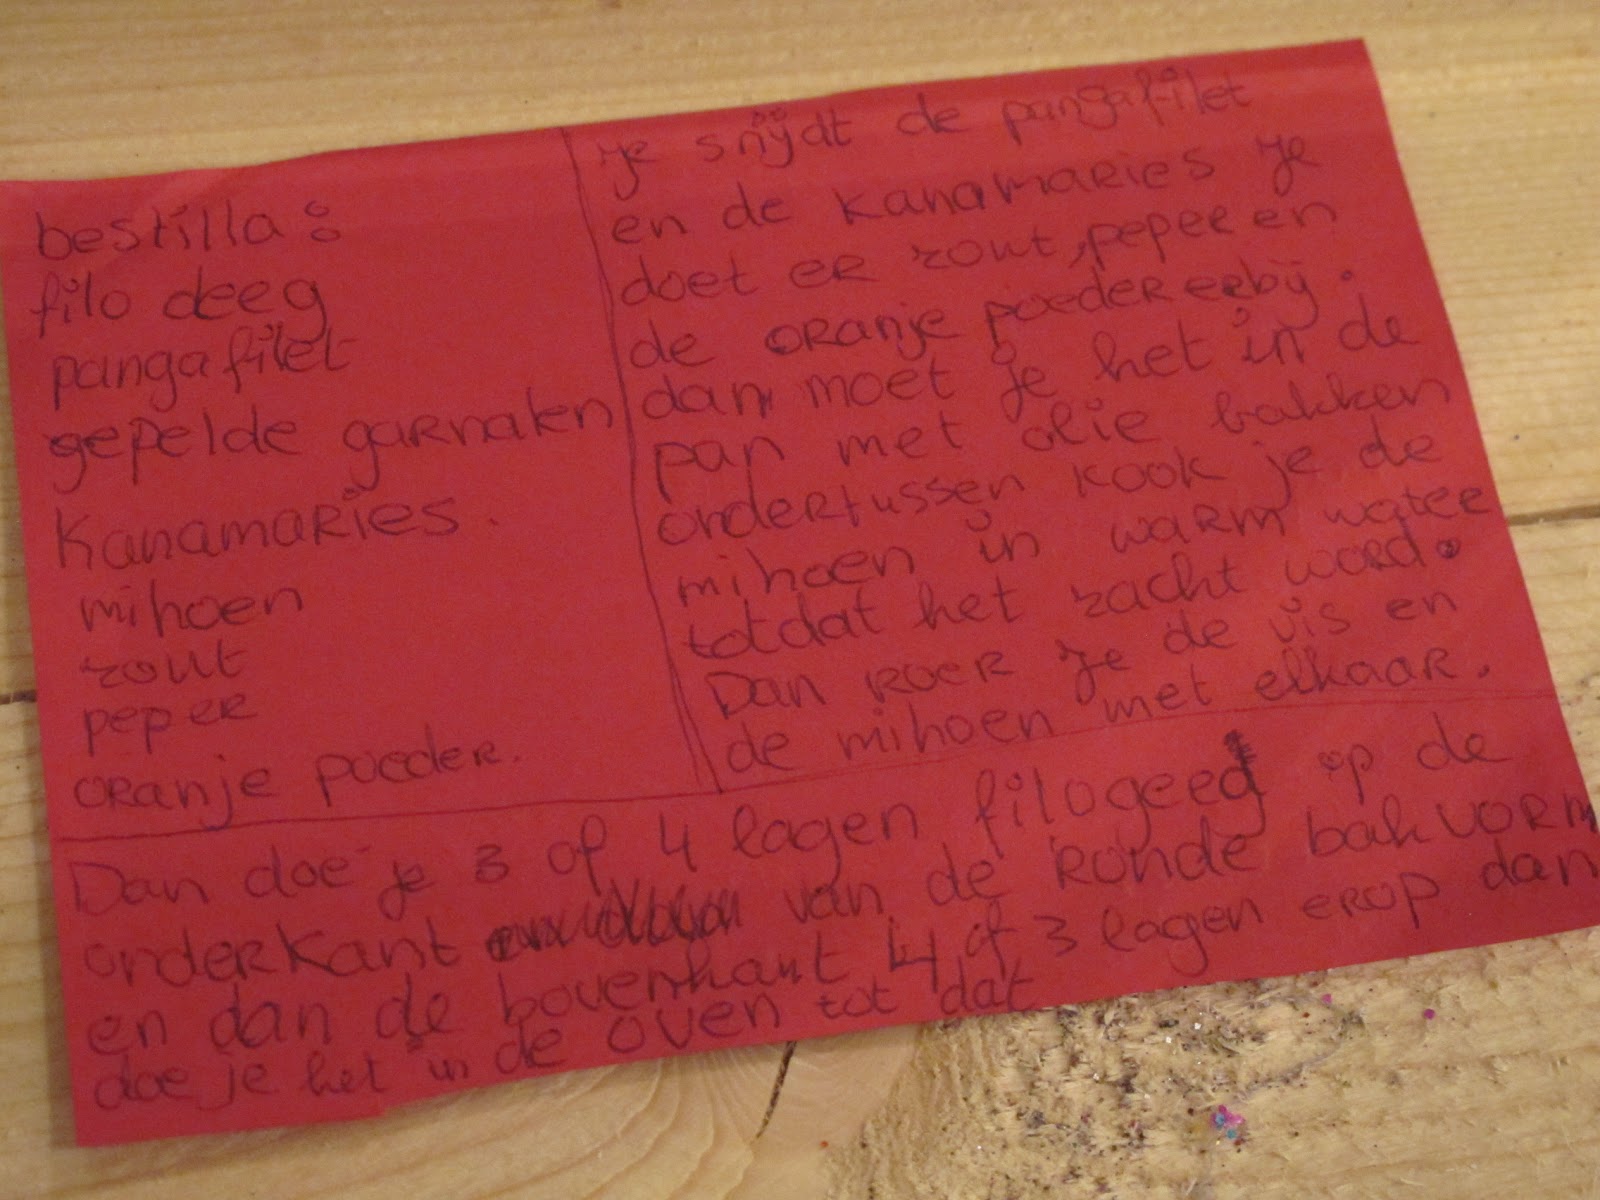 bestilla:
filo deeg
pangafilet
gepelde garnalen
Kanamaries.
mihoen
zout
peper
oranje poeder.
je snijdt de pangafilet
en de Kanamaries je
doet er zout, peper en
de oranje poeder erbij.
dan moet je het in de
pan met olie bakken
ondertussen kook je de
mihoen in warm water
totdat het zacht word.
Dan roer je de vis en
de mihoen met elkaar.
Dan doe je 3 of 4 lagen filogeeg op de
onderkant van de ronde bakvorm
en dan de bovenkant 4 of 3 lagen erop dan
doe je het in de oven tot dat